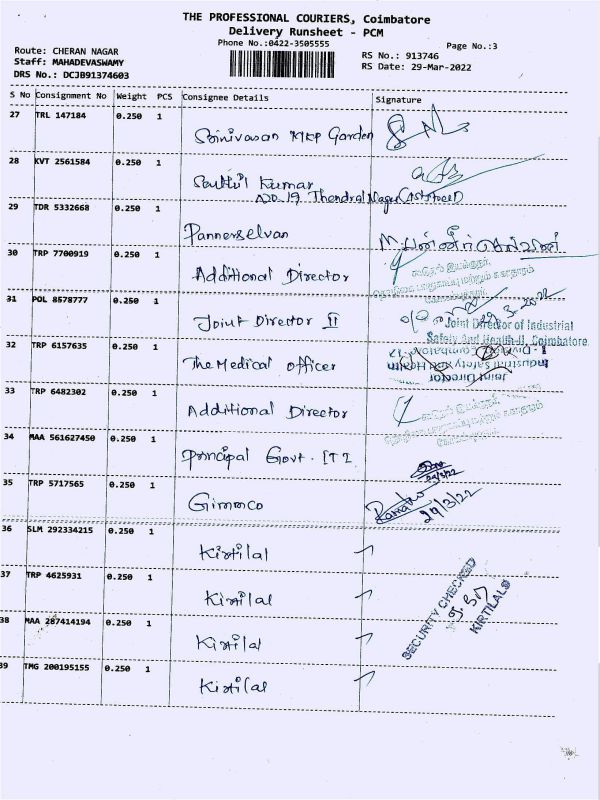 THE PROFESSIONAL COURIERS, Coimbatore
Delivery Runsheet - PCM
Phone No.:0422-3505555
Page No.:3
Route: CHERAN NAGAR
RS No.: 913746
Staff: MAHADEVASWAMY
RS Date: 29-Mar-2022
DRS No.: DCJB91374603
S No Consignment No Weight PCS Consignee Details Signature
27 TRL 147184 0.250 1
Srinivasan MRP Garden
28 KVT 2561584 0.250 1
Kumar
Thendral Nagar
29 TDR 5332668 0.250 1
Pannerselvan
M. பன்னீர் செல்வன்
30 TRP 7700919 0.250 1
Additional Director
31 POL 8578777 0.250 1
Joint Director II
29.3.2022
Joint Director of Industrial
Safety And Health-II, Coimbatore
32 TRP 6157635 0.250 1
The Medical officer
Joint Director
Industrial Safety and Health
33 TRP 6482302 0.250 1
Additional Director
34 MAA 561627450 0.250 1
Principal Govt. ITI
29/3/22
35 TRP 5717565 0.250 1
Gimmco
29/3/22
36 SLM 292334215 0.250 1
Kirtilal
37 TRP 4625931 0.250 1
Kirtilal
SECURITY CHECKED
KIRTILALS
38 MAA 287414194 0.250 1
Kirtilal
39 TMG 200195155 0.250 1
Kirtilal